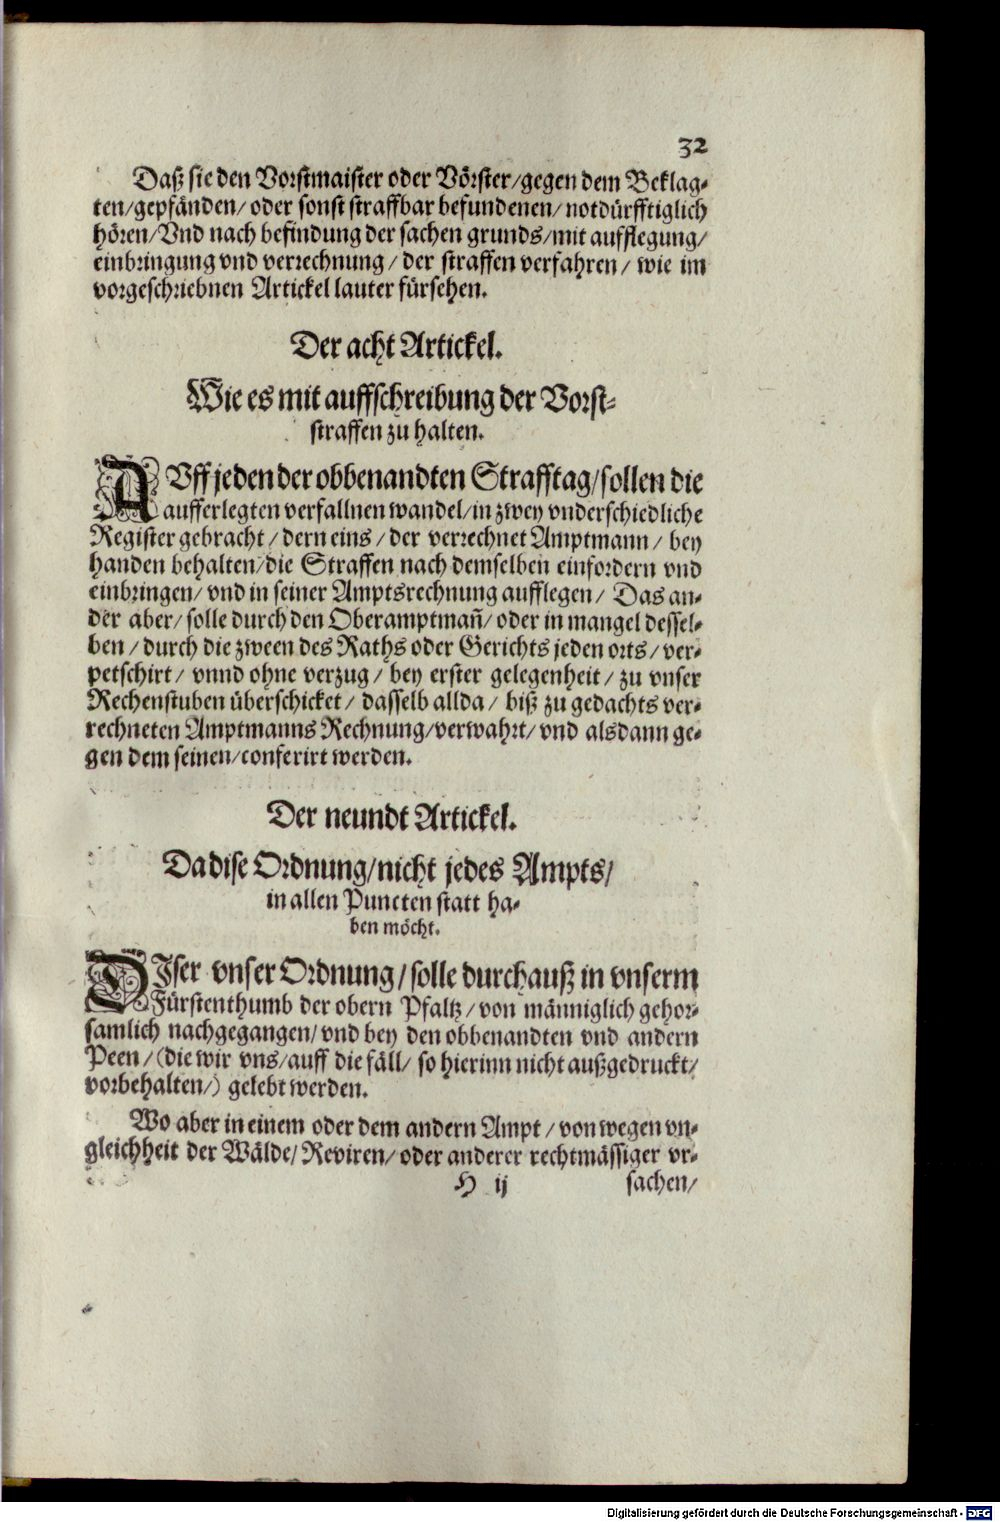 32
Daß sie den Vorstmaister oder Vörster/gegen dem Beklag-
ten/gepfänden/ oder sonst straffbar befundenen/ notdürfftiglich
hören/Vnd nach befindung der sachen grunds/mit aufflegung/
einbringung vnd verrechnung/ der straffen verfahren/ wie im
vorgeschriebnen Artickel lauter fürsehen.
Der acht Artickel.
Wie es mit auffschreibung der Vorst-
straffen zu halten.
AUff jeden der obbenandten Strafftag/sollen die
aufferlegten verfallnen wandel/in zwey vnderschiedliche
Register gebracht/ dern eins/ der verrechnet Amptmann/ bey
handen behalten/die Straffen nach demselben einfordern vnd
einbringen/ vnd in seiner Amptsrechnung aufflegen/ Das an-
der aber/ solle durch den Oberamptmañ/ oder in mangel dessel-
ben/ durch die zween des Raths oder Gerichts jeden orts/ ver-
petschirt/ vnnd ohne verzug/ bey erster gelegenheit/ zu vnser
Rechenstuben überschicket/ dasselb allda/ biß zu gedachts ver-
rechneten Amptmanns Rechnung/verwahrt/ vnd alsdann ge-
gen dem seinen/conferirt werden.
Der neundt Artickel.
Da dise Ordnung/nicht jedes Ampts/
in allen Puncten statt ha-
ben möcht.
DIser vnser Ordnung/solle durchauß in vnserm
Fürstenthumb der obern Pfaltz/ von männiglich gehor-
samlich nachgegangen/ vnd bey den obbenandten vnd andern
Peen/ (die wir vns/auff die fäll/ so hierinn nicht außgedruckt/
vorbehalten/) gelebt werden.
Wo aber in einem oder dem andern Ampt/ von wegen vn-
gleichheit der Wälde/ Reviren/ oder anderer rechtmässiger vr-
H ij sachen/
Digitalisierung gefördert durch die Deutsche Forschungsgemeinschaft - DFG